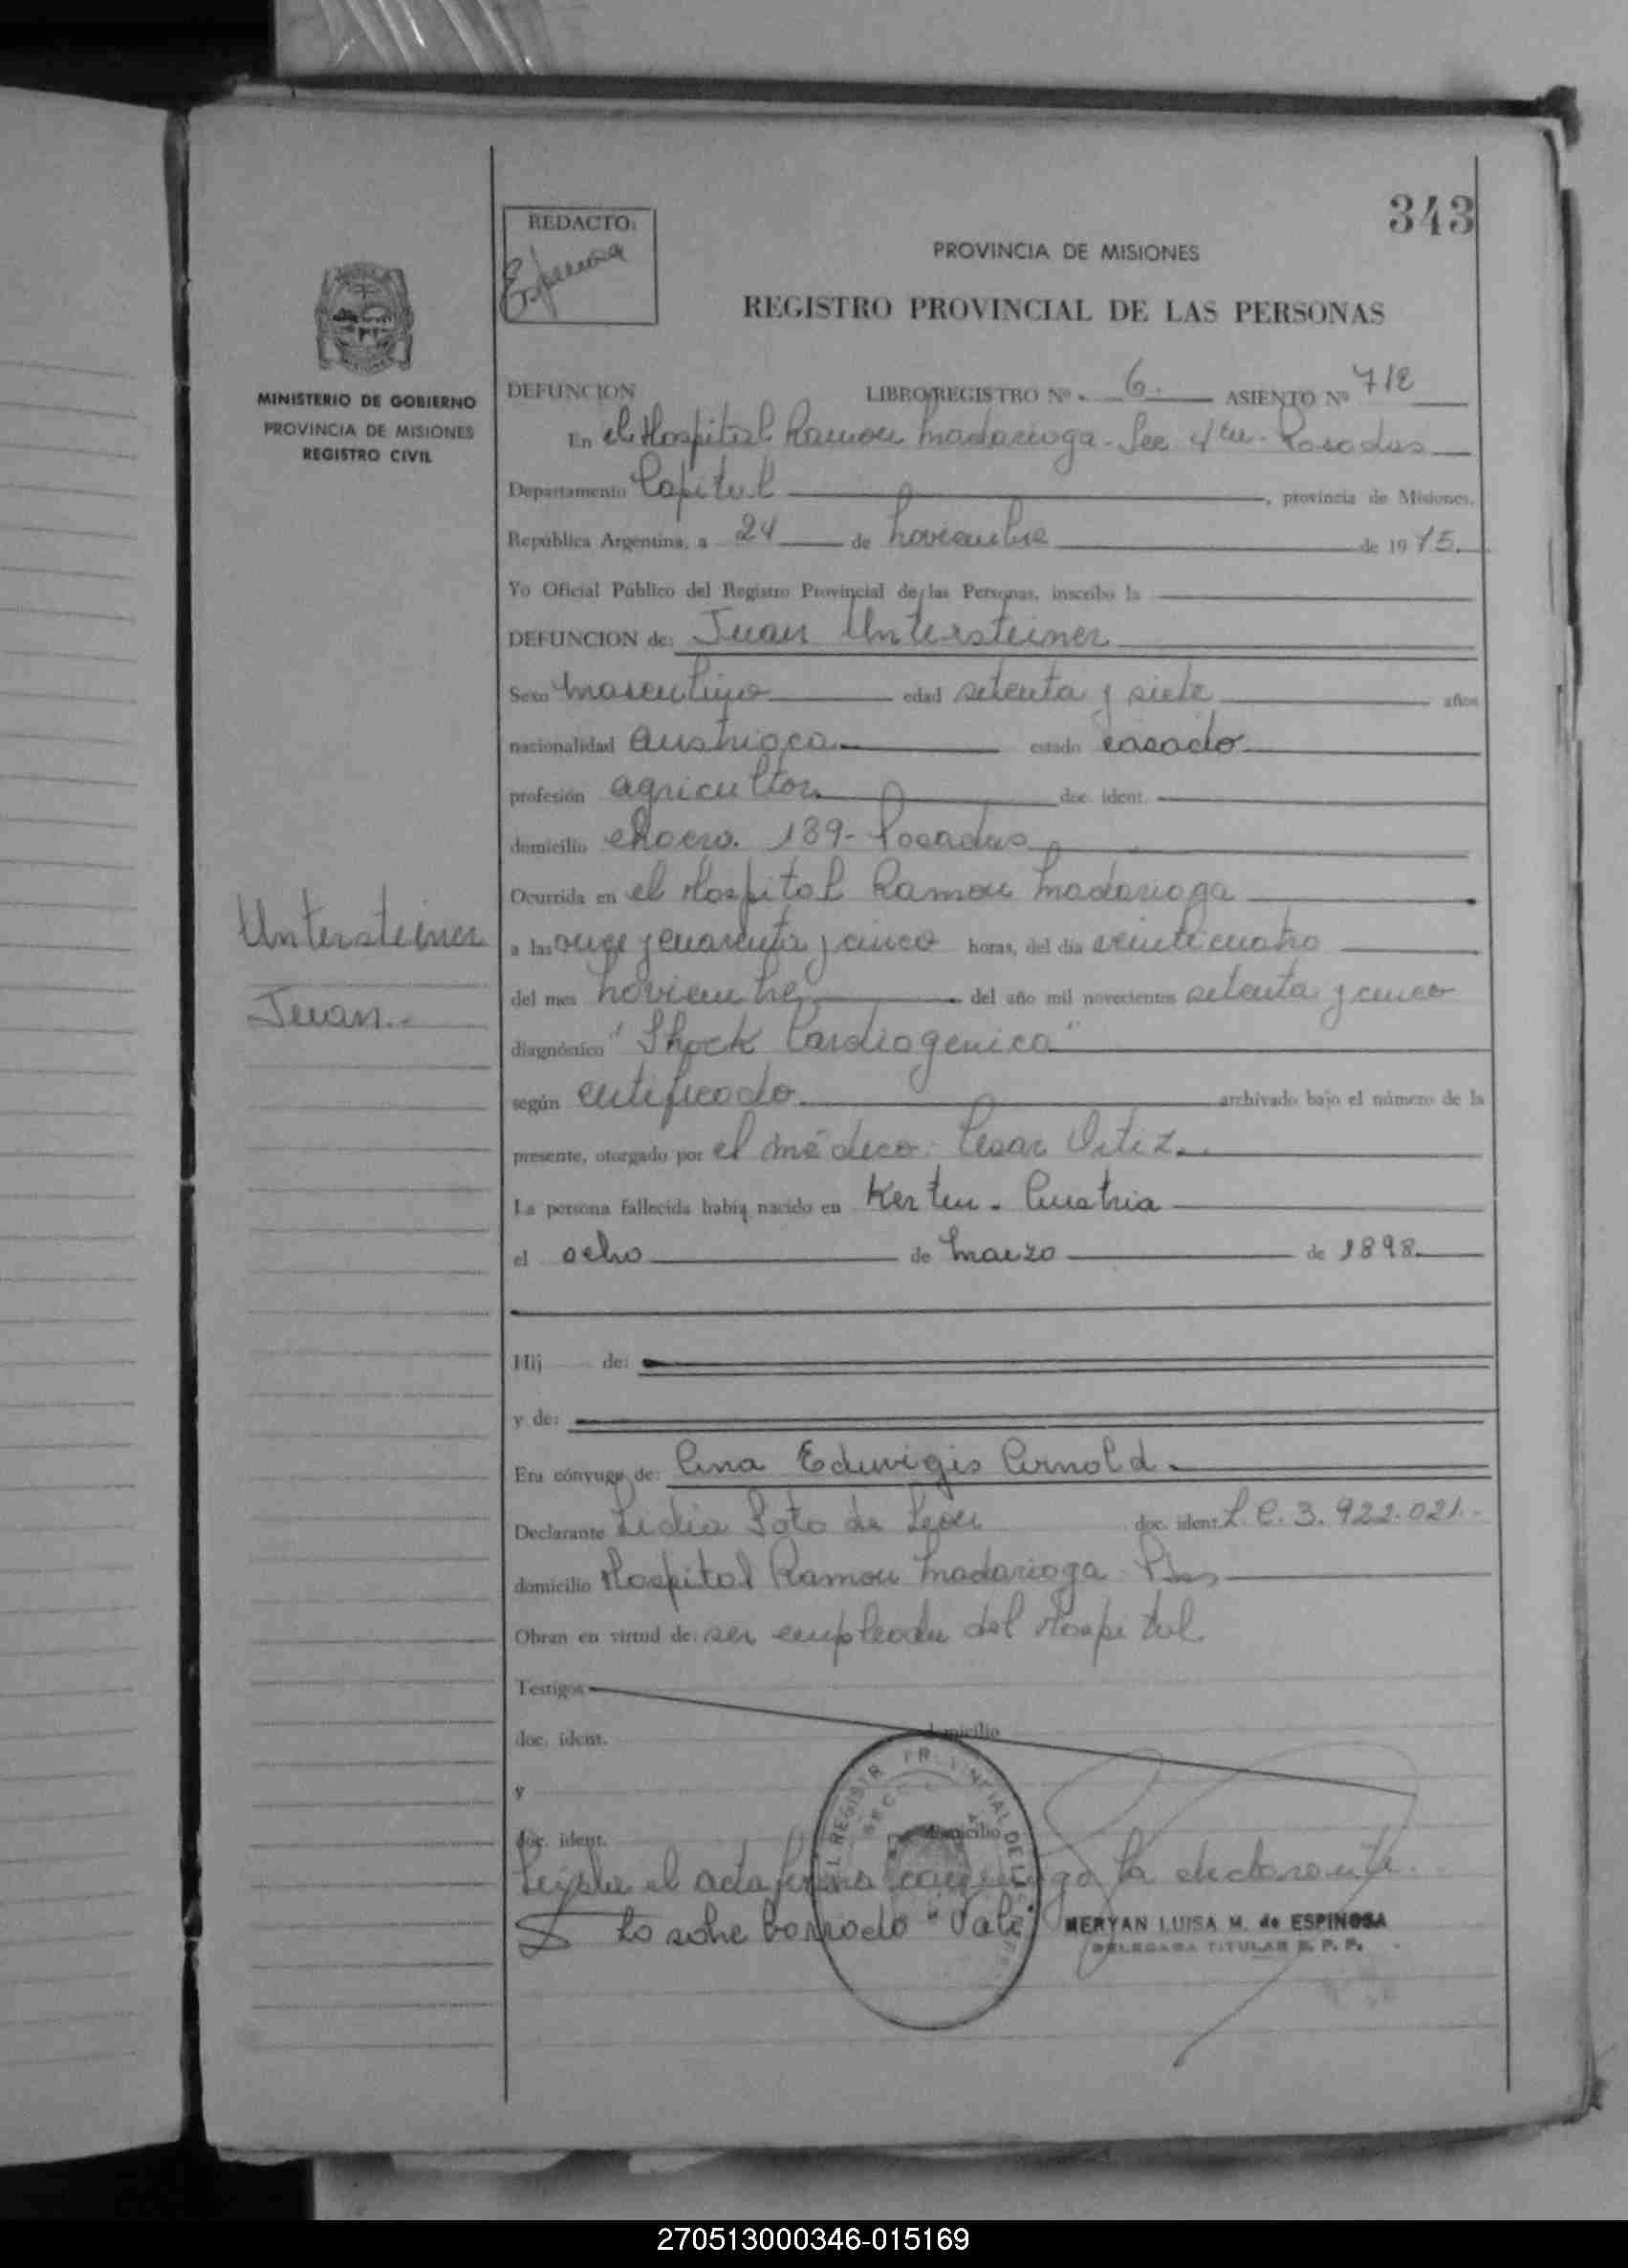 343
REDACTO:
Espinosa
PROVINCIA DE MISIONES
REGISTRO PROVINCIAL DE LAS PERSONAS
MINISTERIO DE GOBIERNO
PROVINCIA DE MISIONES
REGISTRO CIVIL
DEFUNCION LIBRO/REGISTRO Nº 6. ASIENTO Nº 712
En el Hospital Ramon Madariaga - Sec 4ta - Posadas
Departamento Capital, provincia de Misiones.
República Argentina, a 24 de noviembre de 1975.
Yo Oficial Público del Registro Provincial de las Personas, inscribo la
DEFUNCION de: Juan Untersteiner
Sexo masculino edad setenta y siete años
nacionalidad austriaca estado casado
profesión agricultor doc. ident.
domicilio chacra 189 - Posadas
Ocurrida en el Hospital Ramon Madariaga
Untersteiner
Juan.-
a las once y cuarenta y cinco horas, del día veinticuatro
del mes noviembre del año mil novecientos setenta y cinco
diagnóstico "Shock Cardiogenico"
según certificado archivado bajo el número de la
presente, otorgado por el médico: Cesar Ortiz.
La persona fallecida había nacido en Kerten - Austria
el ocho de marzo de 1898.
Hij de:
y de:
Era cónyuge de: Ana Eduvigis Arnold.
Declarante Lidia Soto de Leon doc. ident. L.C. 3.922.021.
domicilio Hospital Ramon Madariaga - Pdas
Obran en virtud de: ser empleada del Hospital.
Testigos
doc. ident. domicilio
y
doc. ident. domicilio
Leida el acta firma conmigo la declarante.
Lo sobre borrado "Vale"
MERYAN LUISA M. de ESPINOSA
DELEGADA TITULAR R. P. P.
270513000346-015169